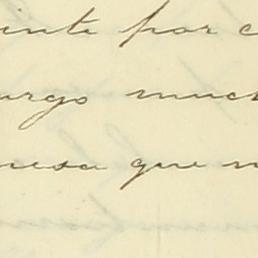 inte por c
urgo much
uesa que n